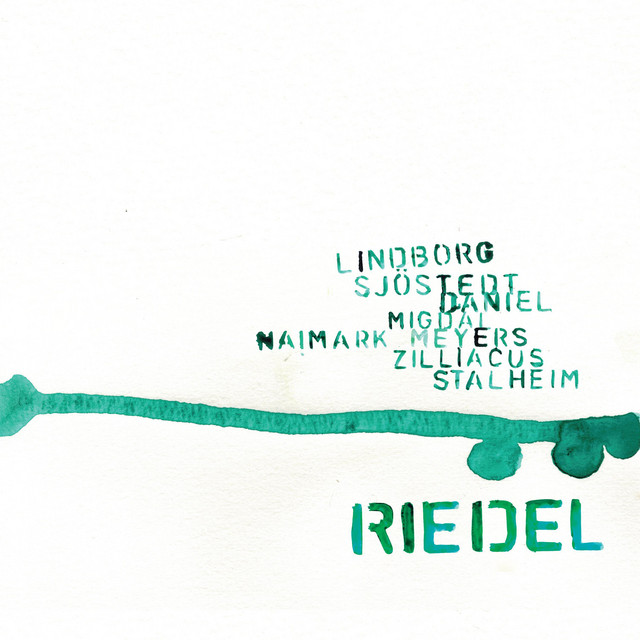 LINDBORG
SJÖSTEDT
DANIEL
MIGDAL
NAIMARK MEYERS
ZILLIACUS
STALHEIM
RIEDEL